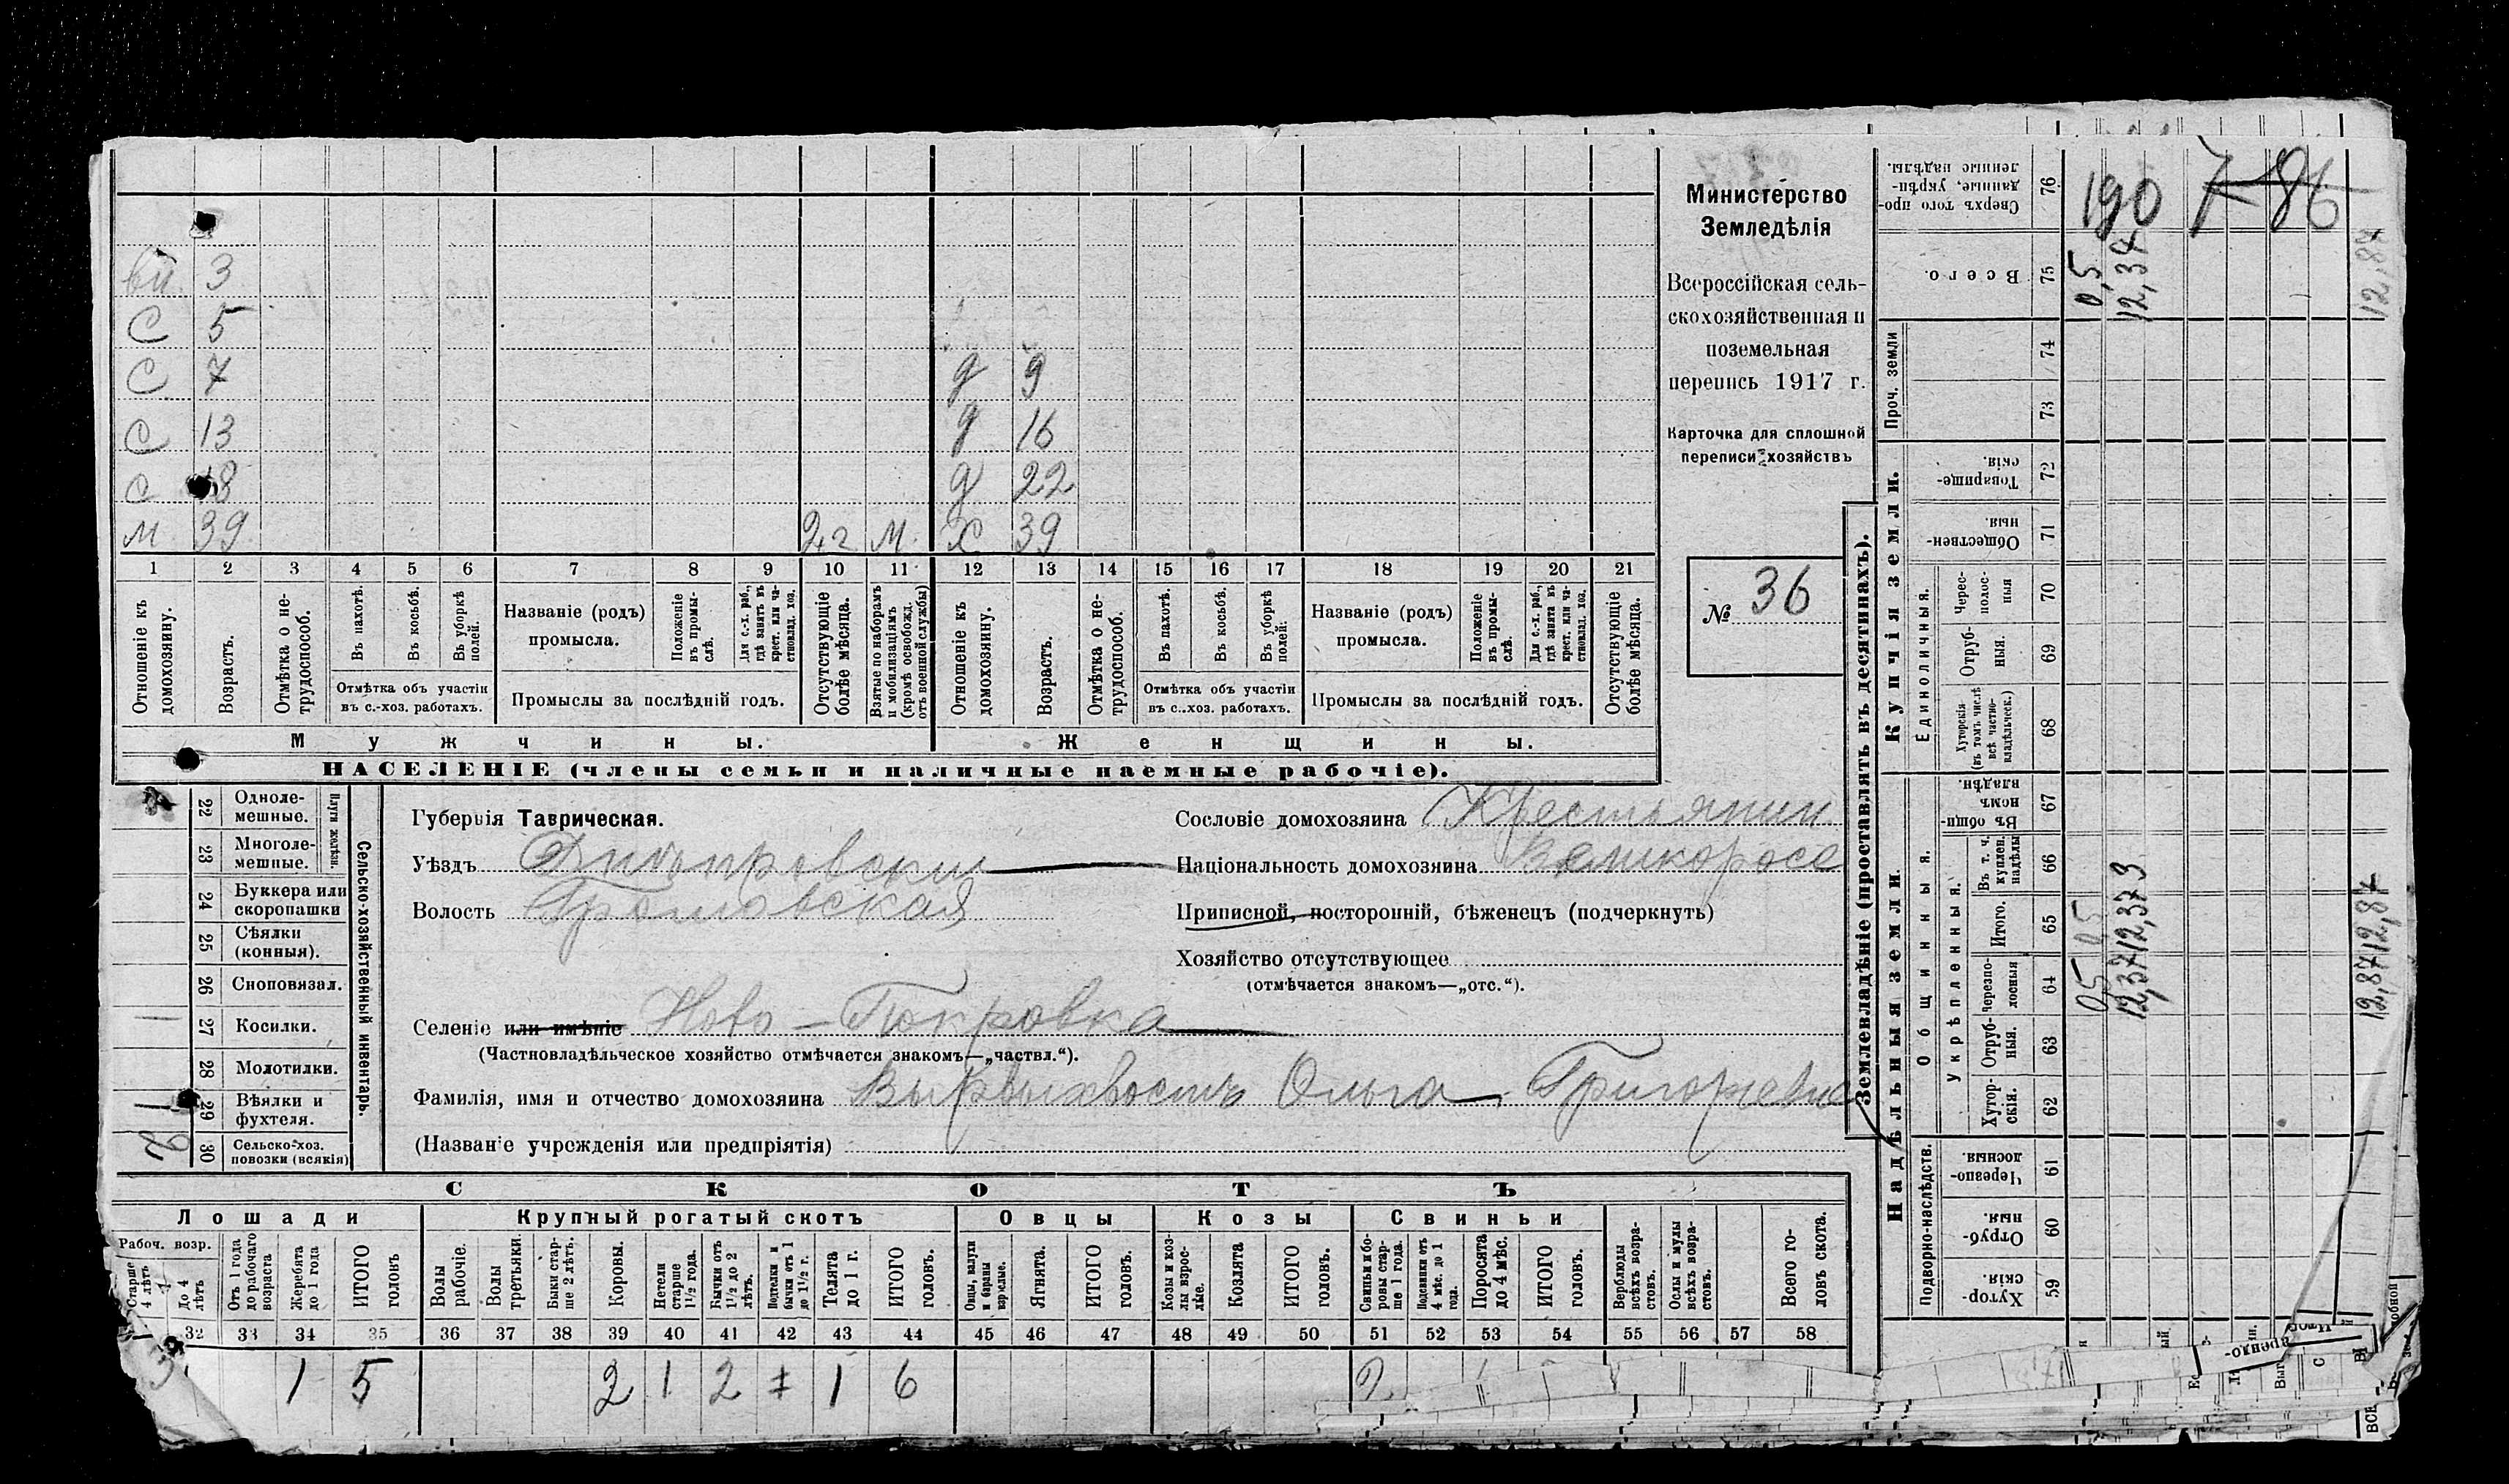 вн. 3
С 5
С 7
С 13
С 18
М 39
д 9
д 16
д 22
2 г М. Х 39
1 2 3 4 5 6 7 8 9 10 11 12 13 14 15 16 17 18 19 20 21
Отношеніе къ домохозяину.
Возрастъ.
Отмѣтка о нетрудоспособ.
Въ пахотѣ.
Въ косьбѣ.
Въ уборкѣ полей.
Отмѣтка объ участіи
въ с.-хоз. работахъ.
Названіе (родъ)
промысла.
Положеніе въ промыслѣ.
Для с.-х. раб., гдѣ занятъ въ крест. или частновлад. хоз.
Промыслы за послѣдній годъ.
Отсутствующіе болѣе мѣсяца.
Взятые по наборамъ и мобилизаціямъ (кромѣ освобожд. отъ военной службы)
Отношеніе къ домохозяину.
Возрастъ.
Отмѣтка о нетрудоспособ.
Въ пахотѣ.
Въ косьбѣ.
Въ уборкѣ полей.
Отмѣтка объ участіи
въ с..хоз. работахъ.
Названіе (родъ)
промысла.
Положеніе въ промыслѣ.
Для с.-х. раб., гдѣ занята въ крест. или частновлад. хоз.
Промыслы за послѣдній годъ.
Отсутствующіе болѣе мѣсяца.
Мужчины.
Женщины.
НАСЕЛЕНІЕ (члены семьи и наличные наемные рабочіе).
Министерство
Земледѣлія
Всероссійская сель-
скохозяйственная и
поземельная
перепись 1917 г.
Карточка для сплошной
переписи хозяйствъ
№ 36
22 Одноле-
мешные.
23 Многоле-
мешные.
Плуги желѣзн.
24 Буккера или
скоропашки
25 Сѣялки
(конныя).
26 Сноповязал.
27 Косилки.
28 Молотилки.
29 Вѣялки и
фухтеля.
30 Сельско-хоз.
повозки (всякія)
Сельско-хозяйственный инвентарь.
Губернія Таврическая.
Уѣздъ Днѣпровскій
Волость Громовская
Селеніе или имѣніе Ново-Покровка
(Частновладѣльческое хозяйство отмѣчается знакомъ—„частвл.“).
Фамилія, имя и отчество домохозяина Вырвыхвостъ Ольга Григорьевна
(Названіе учрежденія или предпріятія)
Сословіе домохозяина Крестьянин
Національность домохозяина Великоросс
Приписной, посторонній, бѣженецъ (подчеркнуть)
Хозяйство отсутствующее
(отмѣчается знакомъ—„отс.“).
СКОТЪ
Лошади
Крупный рогатый скотъ
Овцы
Козы
Свиньи
Рабоч. возр.
Старше 4 лѣтъ
До 4 лѣтъ
Отъ 1 года до рабочаго возраста
Жеребята до 1 года
ИТОГО головъ
Волы рабочіе.
Волы третьяки.
Быки старше 2 лѣтъ.
Коровы.
Нетели старше 1½ года.
Бычки отъ 1½ до 2 лѣтъ.
Подтелки и бычки отъ 1 до 1½ г.
Телята до 1 г.
ИТОГО головъ.
Овцы, валухи и бараны взрослые.
Ягнята.
ИТОГО головъ.
Козы и козлы взрослые.
Козлята
ИТОГО головъ.
Свиньи и боровы старше 1 года.
Подсвинки отъ 4 мѣс. до 1 года.
Поросята до 4 мѣс.
ИТОГО головъ.
Верблюды всѣхъ возрастовъ.
Ослы и мулы всѣхъ возрастовъ.
Всего головъ скота.
32 33 34 35 36 37 38 39 40 41 42 43 44 45 46 47 48 49 50 51 52 53 54 55 56 57 58
3 1 5 2 1 2 1 6 2
Землевладѣніе (проставлять въ десятинахъ).
Надѣльныя земли.
Купчія земли.
Проч. земли
Подворно-наслѣдств.
Общинныя.
Укрѣпленныя.
Единоличныя.
Сверхъ того проданные, укрѣпленные надѣлы. 76
Всего. 75
74
73
Товарищескія. 72
Общественныя 71
Чересполосныя 70
Отрубныя. 69
Хуторскія (въ томъ числѣ всѣ частновладѣльческ.) 68
Въ общинномъ владѣн. 67
Въ т. ч. куплен. надѣлы 66
Итого. 65
Черезполосныя 64
Отрубныя. 63
Хуторскія. 62
Черезполосныя. 61
Отрубныя. 60
Хуторскія. 59
190 7 86
0,5
12,37
12,87
0,5 0,5
12,37 12,37 3
12,87 12,87